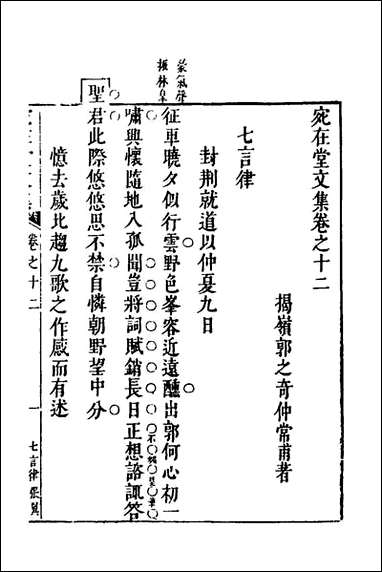 宛在堂文集卷之十二
揭嶺郭之奇仲常甫著
七言律
封荆就道以仲夏九日
振林皐
征車曉夕似行雲野色峯容近遠醺出郭何心初一
嘯興懷隨地入孤聞豈將詞賦銷長日正想諮諏答
聖君此際悠悠思不禁自憐朝野望中分
憶去歲北趨九歌之作感而有述
卷之十二
一
七言律